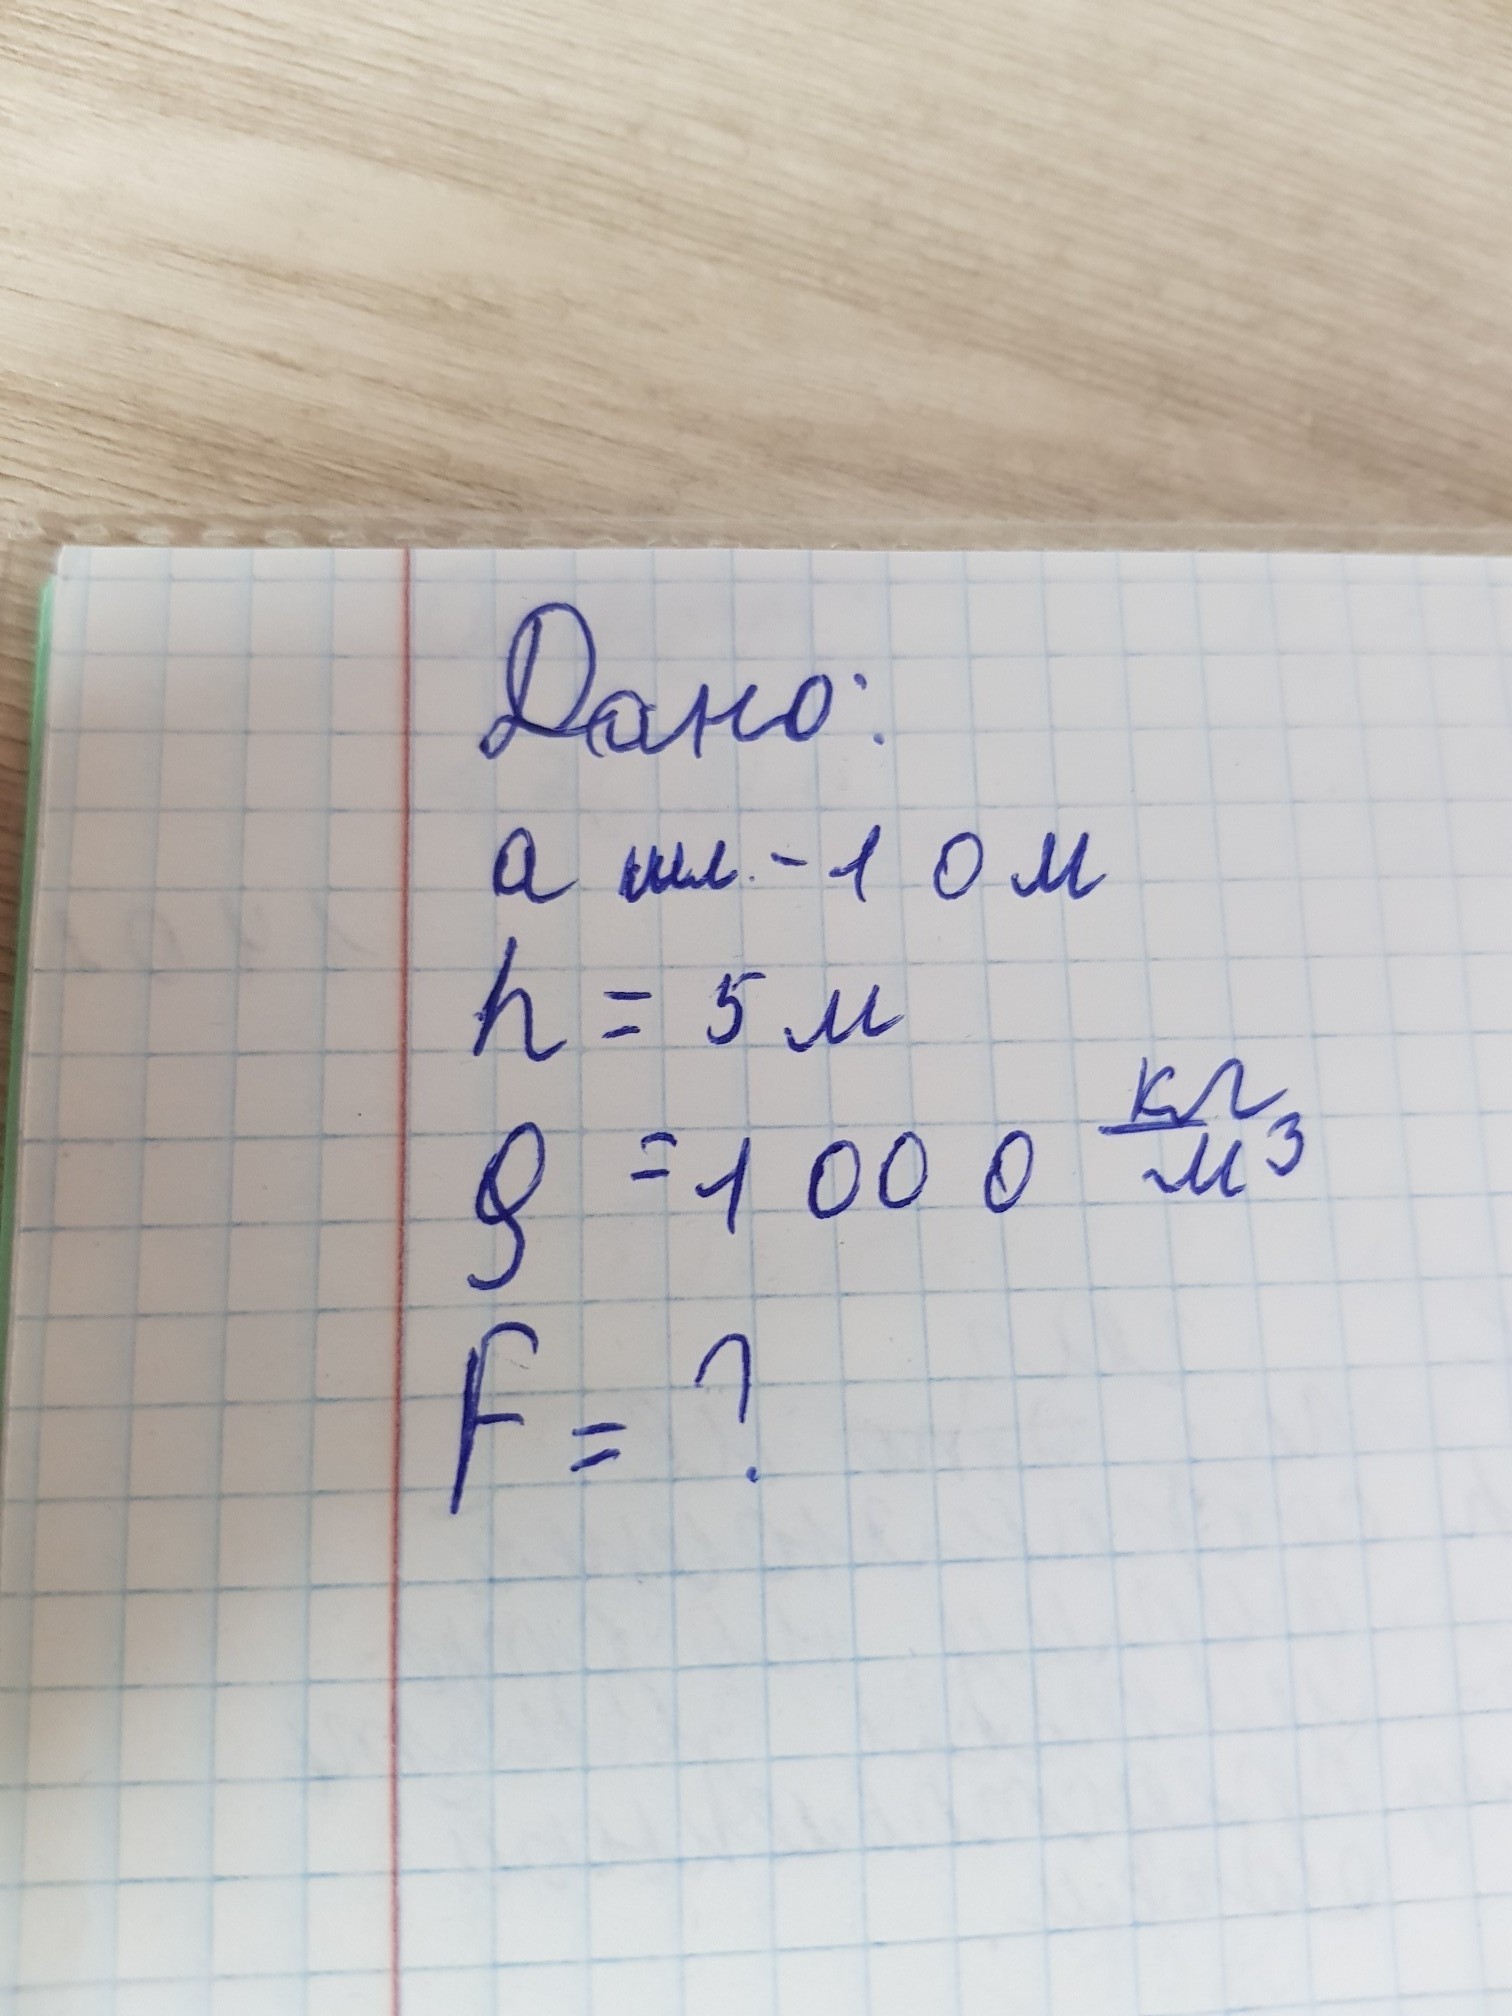 Дано:
a шл. - 10 м
h = 5 м
ρ = 1000 кг/м³
F = ?